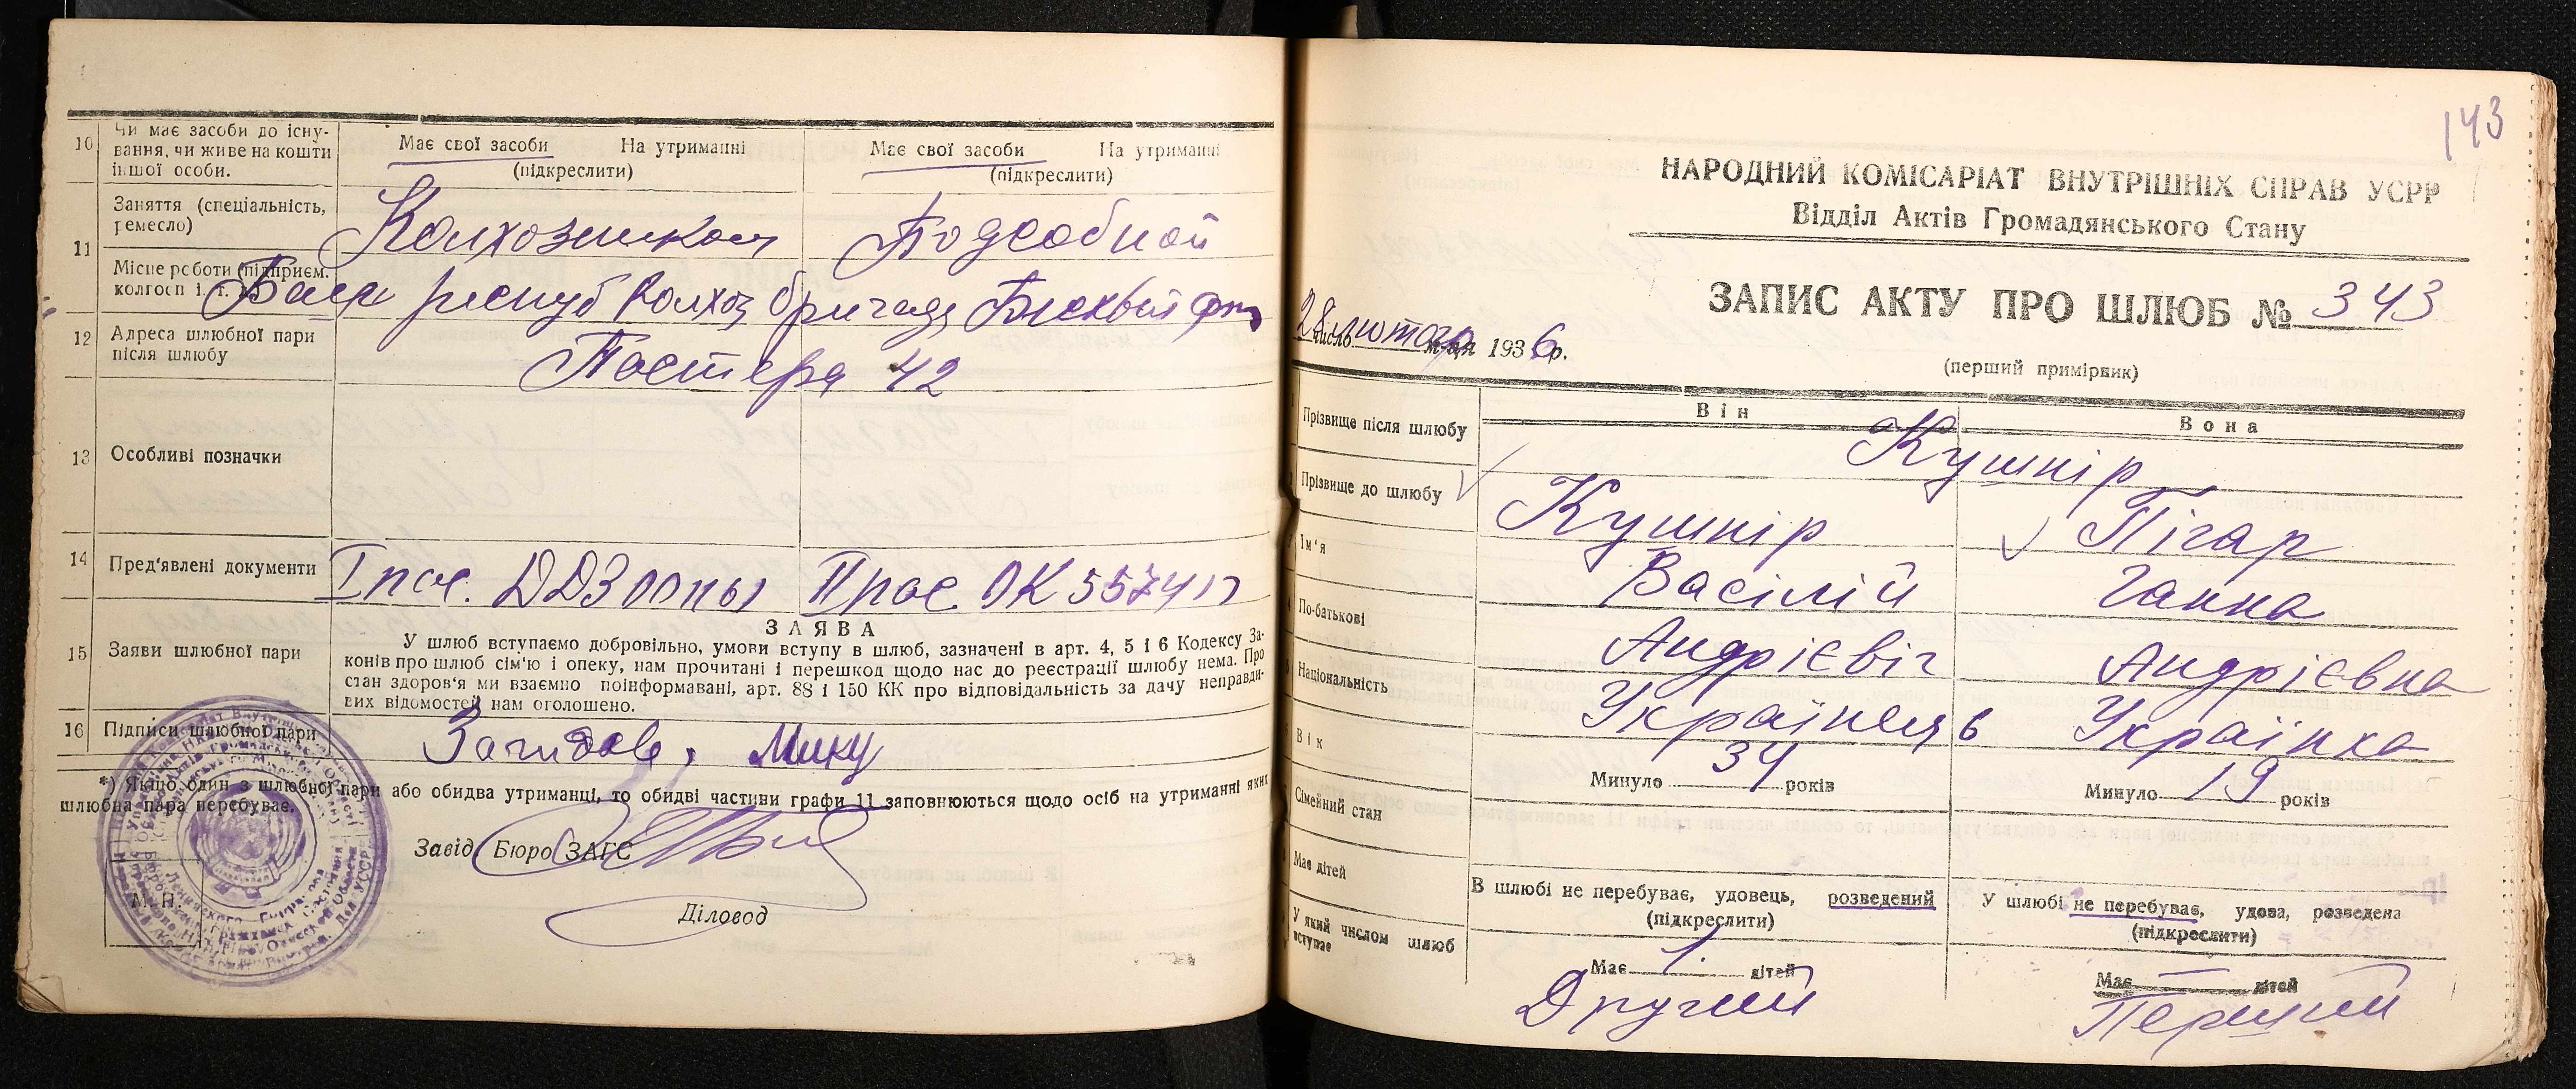 10 Чи має засоби до існу-
вання, чи живе на кошти
іншої особи.
Має свої засоби На утриманні
(підкреслити)
Має свої засоби На утриманні
(підкреслити)
11 Заняття (спеціальність,
ремесло)
Подсобной
Місце роботи (підприєм.
колгосп і т.
колхоз бригада
12 Адреса шлюбної пари
після шлюбу
Пастера 42
13 Особливі позначки
14 Пред'явлені документи
15 Заяви шлюбної пари
ЗАЯВА
У шлюб вступаємо добровільно, умови вступу в шлюб, зазначені в арт. 4, 5 і 6 Кодексу За-
конів про шлюб сім'ю і опеку, нам прочитані і перешкод щодо нас до реєстрації шлюбу нема. Про
стан здоров'я ми взаємно поінформавані, арт. 88 і 150 КК про відповідальність за дачу неправди-
вих відомостей нам оголошено.
16 Підписи шлюбної пари
*) Якщо один з шлюбної пари або обидва утриманці, то обидві частини графи 11 заповнюються щодо осіб на утриманні яких
шлюбна пара перебуває.
Завід. Бюро ЗАГС
Діловод
М. П.
143
НАРОДНИЙ КОМІСАРІАТ ВНУТРІШНІХ СПРАВ УСРР
Відділ Актів Громадянського Стану
ЗАПИС АКТУ ПРО ШЛЮБ № 343
28 числа лютого м-ця 1936 р.
(перший примірник)
Він
Вона
Прізвище після шлюбу
Кушнір
Прізвище до шлюбу
Кушнір
Пігар
Ім'я
Васілій
Ганна
По-батькові
Андрієвіч
Андрієвна
Національність
Українка
Вік
Минуло 34 років
Минуло 19 років
Сімейний стан
В шлюбі не перебуває, удовець, розведений
(підкреслити)
У шлюбі не перебуває, удова, розведена
(підкреслити)
Має дітей
Має 1. дітей
Має — дітей
У який числом шлюб
вступає
Другий
Перший